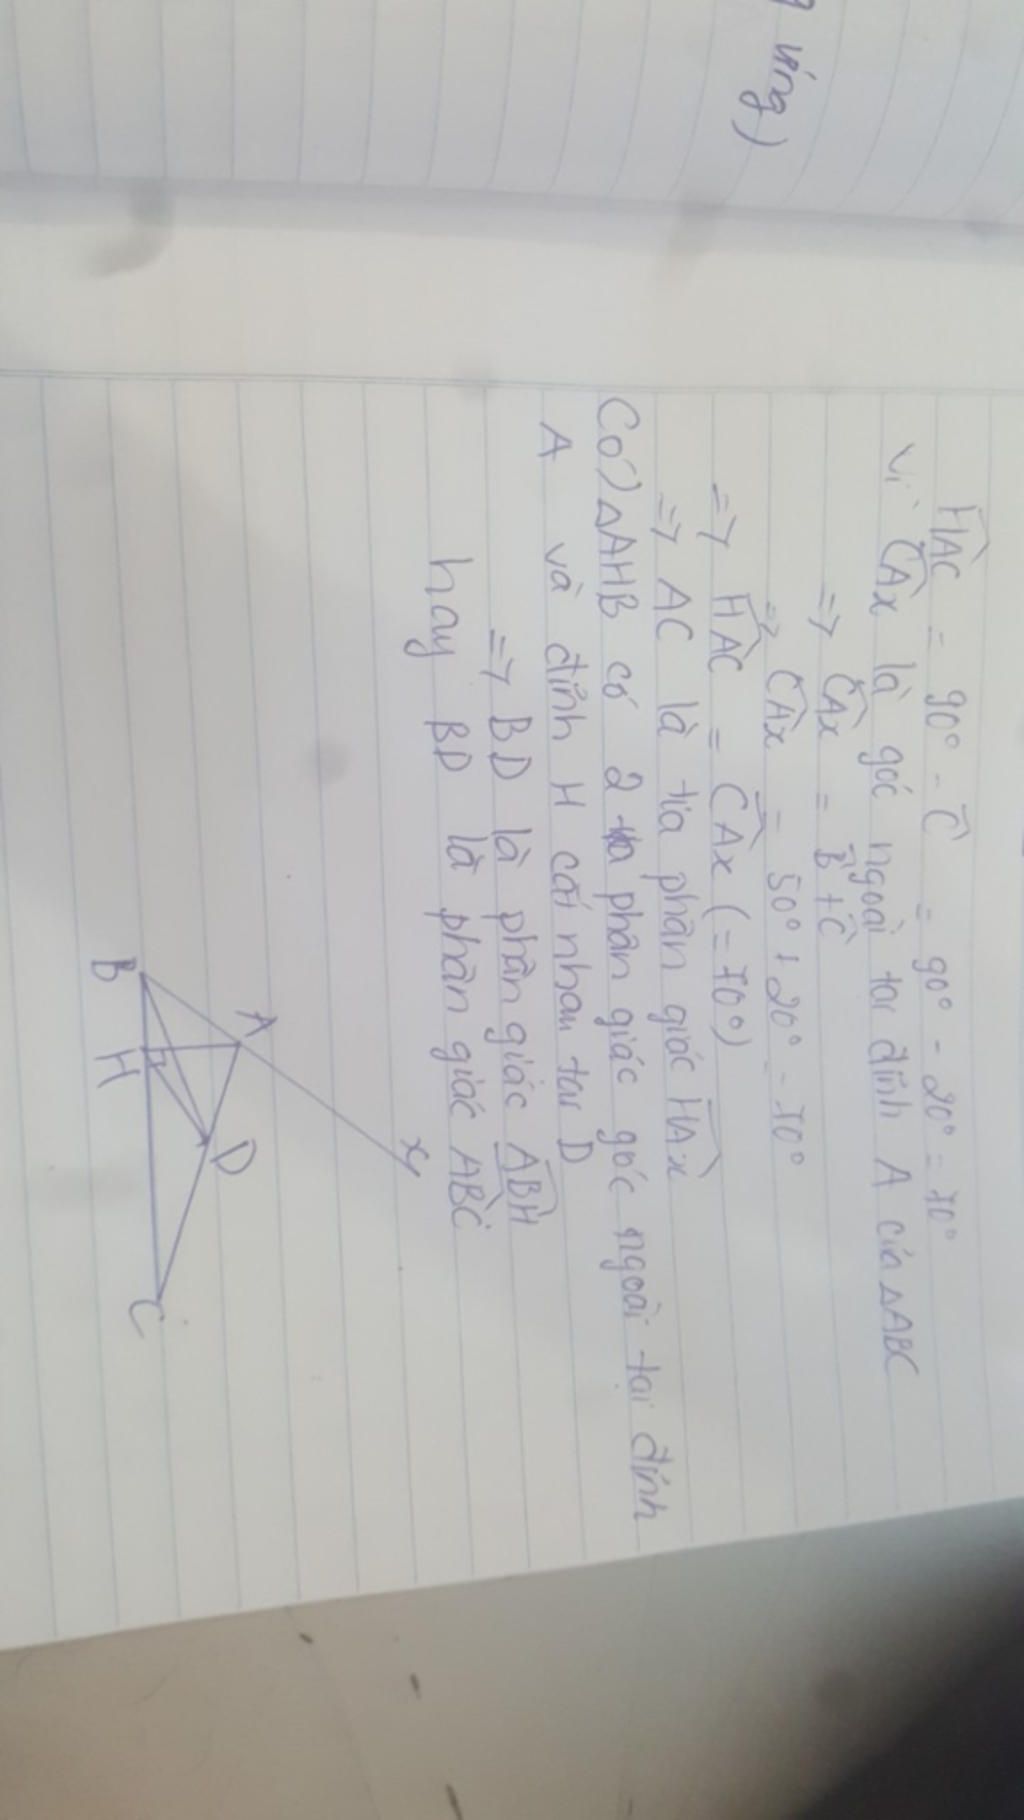 ứng)
HAC = 90° - C = 90° - 20° = 70°
Vì CAx là góc ngoài tại đỉnh A của △ABC
=> CAx = B + C
=> CAx = 50° + 20° = 70°
=> HAC = CAx (= 70°)
=> AC là tia phân giác HAx
Có △AHB có 2 tia phân giác góc ngoài tại đỉnh
A và đỉnh H cắt nhau tại D
=> BD là phân giác ABH
hay BD là phân giác ABC
x
A
D
B
H
C